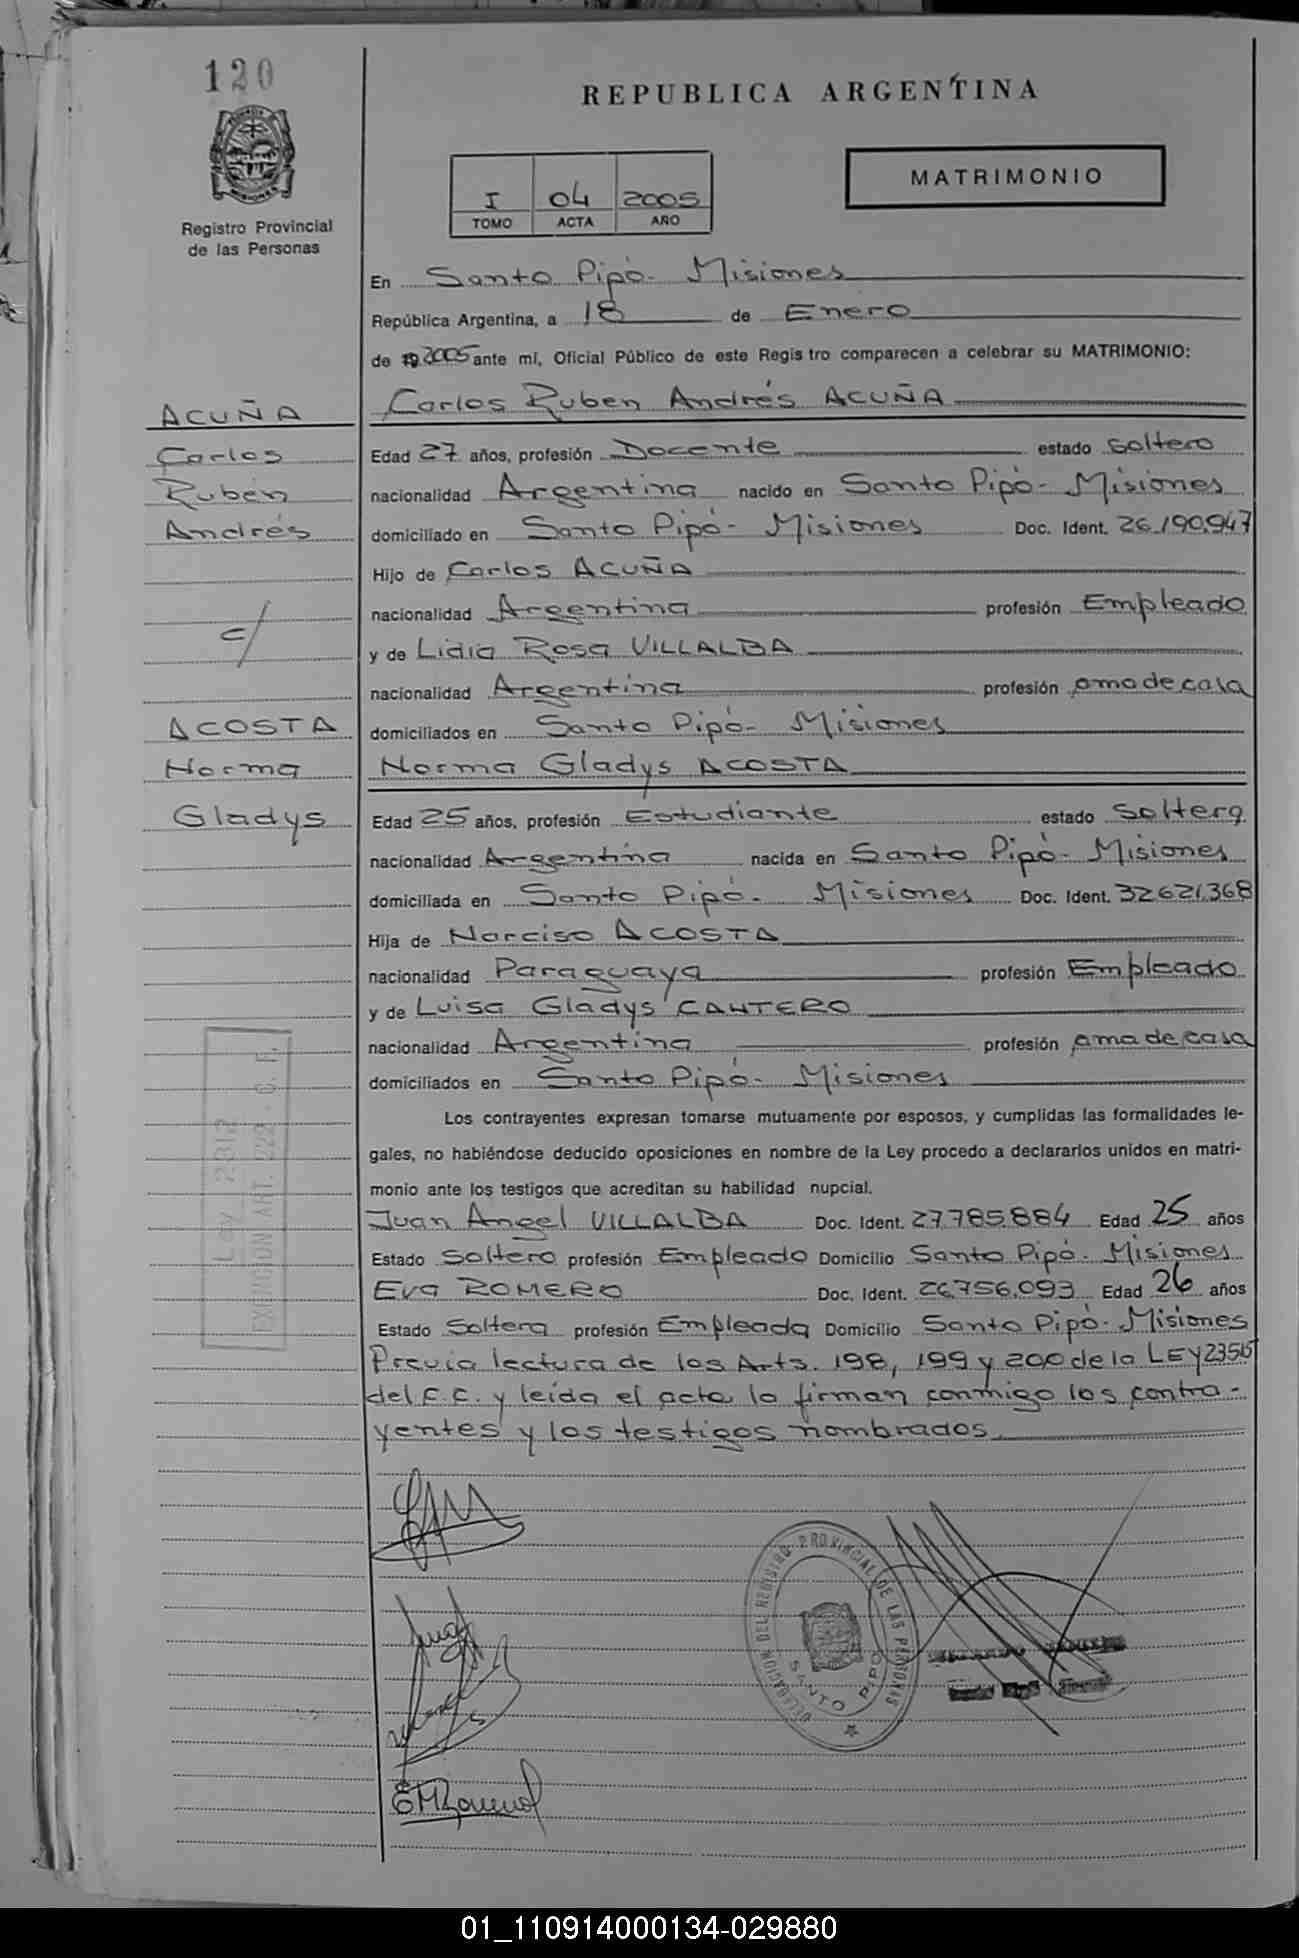 120
REPUBLICA ARGENTINA
MATRIMONIO
I 04 2005
TOMO ACTA AÑO
Registro Provincial
de las Personas
En Santo Pipó- Misiones
República Argentina, a 18 de Enero
de 19 2005 ante mí, Oficial Público de este Registro comparecen a celebrar su MATRIMONIO:
ACUÑA
Carlos
Rubén
Andrés
c/
ACOSTA
Norma
Gladys
Carlos Ruben Andrés ACUÑA
Edad 27 años, profesión Docente estado soltero
nacionalidad Argentina nacido en Santo Pipó- Misiones
domiciliado en Santo Pipó- Misiones Doc. Ident. 26.190.947
Hijo de Carlos ACUÑA
nacionalidad Argentina profesión Empleado
y de Lidia Rosa VILLALBA
nacionalidad Argentina profesión ama de casa
domiciliados en Santo Pipó- Misiones
Norma Gladys ACOSTA
Edad 25 años, profesión Estudiante estado soltera
nacionalidad Argentina nacida en Santo Pipó- Misiones
domiciliada en Santo Pipó- Misiones Doc. Ident. 32.621.368
Hija de Narciso ACOSTA
nacionalidad Paraguaya profesión Empleado
y de Luisa Gladys CANTERO
nacionalidad Argentina profesión ama de casa
domiciliados en Santo Pipó- Misiones
Los contrayentes expresan tomarse mutuamente por esposos, y cumplidas las formalidades le-
gales, no habiéndose deducido oposiciones en nombre de la Ley procedo a declararlos unidos en matri-
monio ante los testigos que acreditan su habilidad nupcial.
Juan Angel VILLALBA Doc. Ident. 27.785.884 Edad 25 años
Estado Soltero profesión Empleado Domicilio Santo Pipó- Misiones
Eva ROMERO Doc. Ident. 26.756.093 Edad 26 años
Estado Soltera profesión Empleada Domicilio Santo Pipó- Misiones
Previa lectura de los Arts. 198, 199 y 200 de la LEY 23515
del C.C. y leída el acta la firman conmigo los contra-
yentes y los testigos nombrados
Ley 2812
EXENCION ART. 222 . C. F.
DELEGACION DEL REGISTRO PROVINCIAL DE LAS PERSONAS
SANTO PIPO
01_110914000134-029880